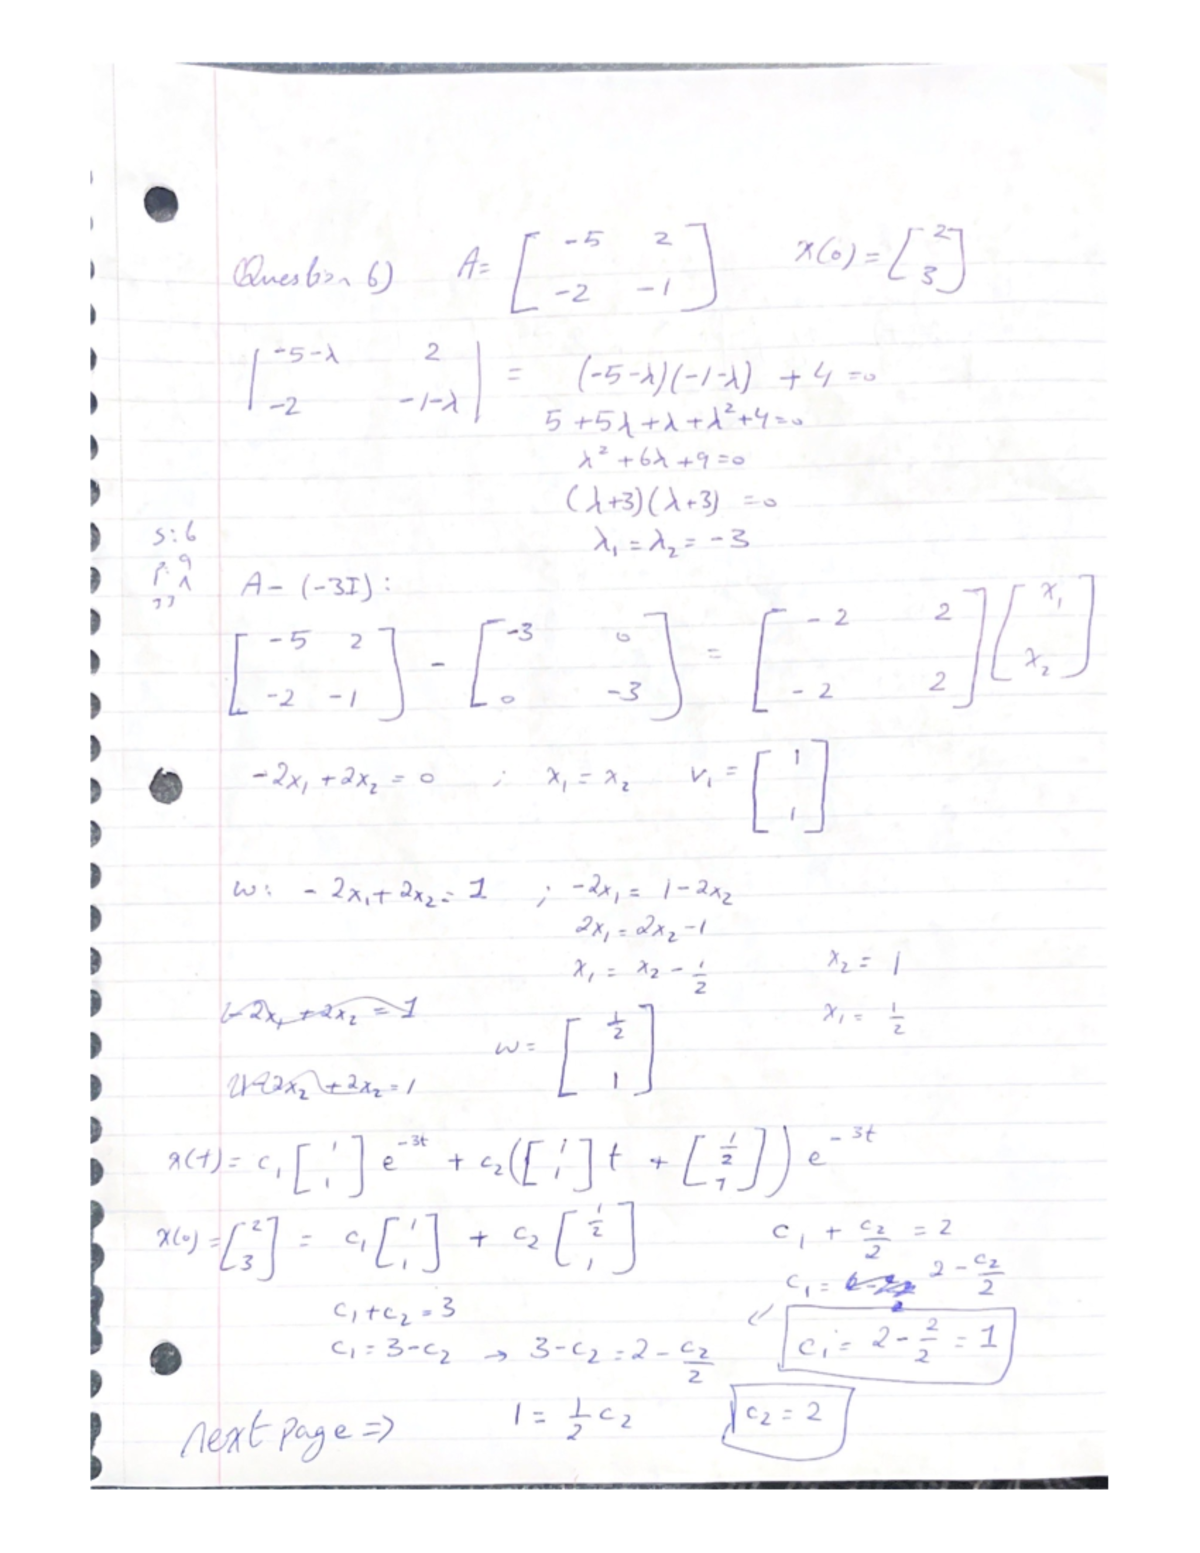 Question 6) A= [ -5 2 ; -2 -1 ] x(0) = [ 2 ; 3 ]
| -5-λ 2 ; -2 -1-λ | = (-5-λ)(-1-λ) + 4 =0
5 +5λ+λ+λ²+4=0
λ² +6λ +9 =0
(λ+3)(λ+3) =0
λ₁ = λ₂ = -3
S:6
p: 9
A - (-3I) :
[ -5 2 ; -2 -1 ] - [ -3 0 ; 0 -3 ] = [ -2 2 ; -2 2 ] [ x₁ ; x₂ ]
-2x₁ +2x₂ = 0 ; x₁ = x₂ v₁ = [ 1 ; 1 ]
w: - 2x₁+ 2x₂ = 1 ; -2x₁ = 1-2x₂
2x₁ = 2x₂ -1
x₁ = x₂ - 1/2 x₂ = 1
-2x₁ +2x₂ = 1 x₁ = 1/2
w = [ 1/2 ; 1 ]
2x₂ +2x₂ = 1
x(t) = c₁ [ 1 ; 1 ] e^-3t + c₂ ( [ 1 ; 1 ] t + [ 1/2 ; 1 ] ) e^-3t
x(0) = [ 2 ; 3 ] = c₁ [ 1 ; 1 ] + c₂ [ 1/2 ; 1 ] c₁ + c₂/2 = 2
c₁ = 2 - c₂/2
c₁+c₂ = 3
c₁ = 3-c₂ → 3-c₂ = 2 - c₂/2 c₁ = 2 - 2/2 = 1
1 = 1/2 c₂ c₂ = 2
next page ⇒